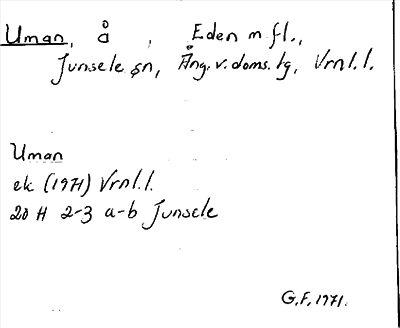 Uman, å, Eden m fl.,
Junsele sn, Ång. v. doms. tg, Vrnl. l.
Uman
ek (1971) Vrnl. l.
20 H 2-3 a-b Junsele
G.F. 1971.